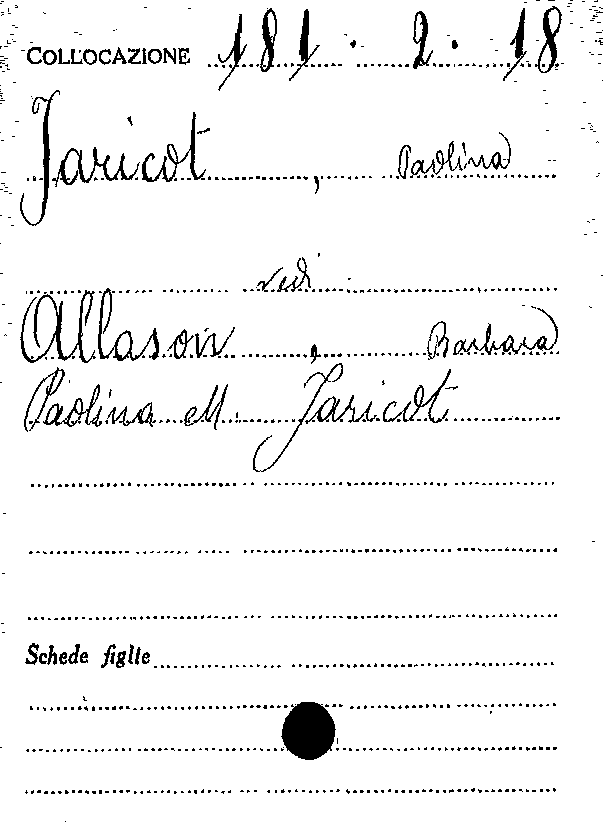 COLLOCAZIONE 181. 2. 18
Jaricot, Paolina
vedi
Allason, Barbara
Paolina M. Jaricot
Schede figlie